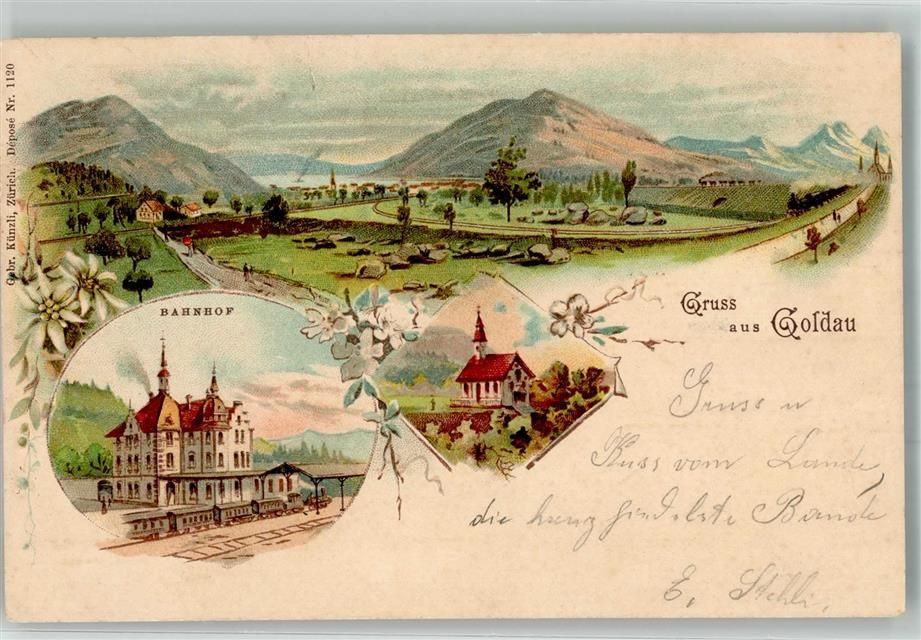 Gebr. Künzli, Zürich. Déposé Nr. 1120
BAHNHOF
Gruss
aus Goldau
Gruss u
Kuss vom Lande,
die kreuzfidelste Bande
E. Stehli.